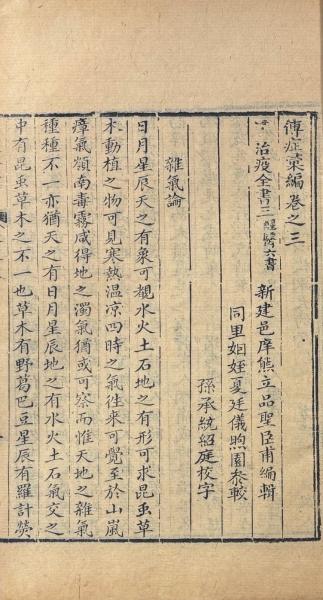 傳症彙編卷之三
治疫全書三 醒醫六書
新建邑庠熊立品聖臣甫編輯
同里姻姪夏廷儀煦園參較
孫承統紹庭校字
雜氣論
日月星辰天之有象可覩水火土石地之有形可求昆虫草
木動植之物可見寒熱温凉四時之氣徃來可覺至於山嵐
瘴氣嶺南毒霧咸得地之濁氣猶或可察而惟天地之雜氣
種種不一亦猶天之有日月星辰地之有水火土石氣交之
中有昆虫草木之不一也草木有野葛巴豆星辰有羅計熒